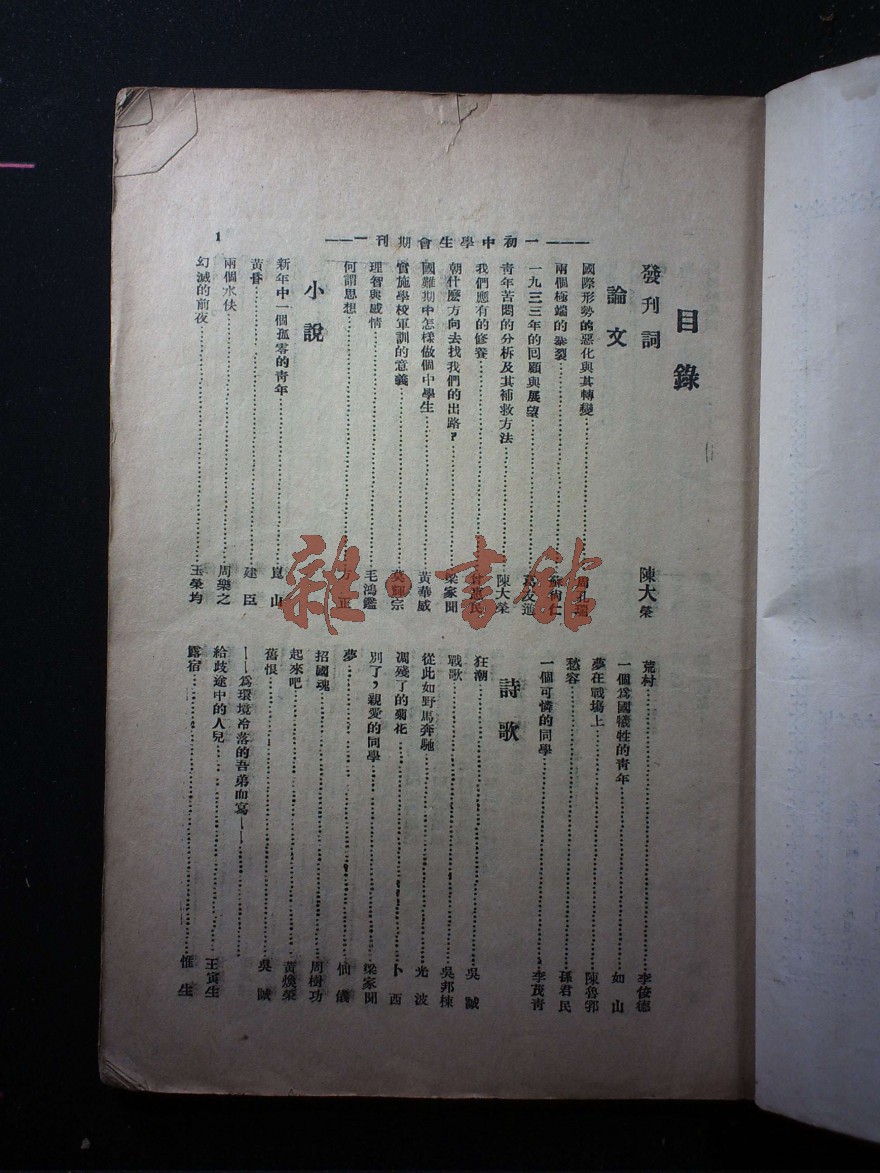 一初中學生會期刊一
1
目錄
發刊詞 陳大榮
論文
國際形勢的惡化與其轉變 周孔
兩個極端的暴裂 仁
一九三三年的回顧與展望 葛友
青年苦悶的分析及其補救方法 陳大榮
我們應有的修養 民
朝什麼方向去找我們的出路? 梁家聞
國難期中怎樣做個中學生 黃華威
實施學校軍訓的意義 莫輝宗
理智與感情 毛鴻鑑
何謂思想 方正
小說
新年中一個孤零的青年 崑山
黃昏 建臣
兩個水伕 周樂之
幻滅的前夜 玉榮均
荒村 李俊德
一個爲國犧牲的青年 如山
夢在戰場上 陳魯郭
愁容 孫君民
一個可憐的同學 李茂青
詩歌
狂潮 吳誠
戰歌 吳邦棟
從此如野馬奔馳 光波
凋殘了的菊花 卜西
別了,親愛的同學 梁家聞
夢 仙儀
招國魂 周樹功
起來吧 黃煥榮
舊恨 吳誠
——爲環境冷落的吾弟而寫——
給歧途中的人兒 王寅生
露宿 惟生
雜·書館